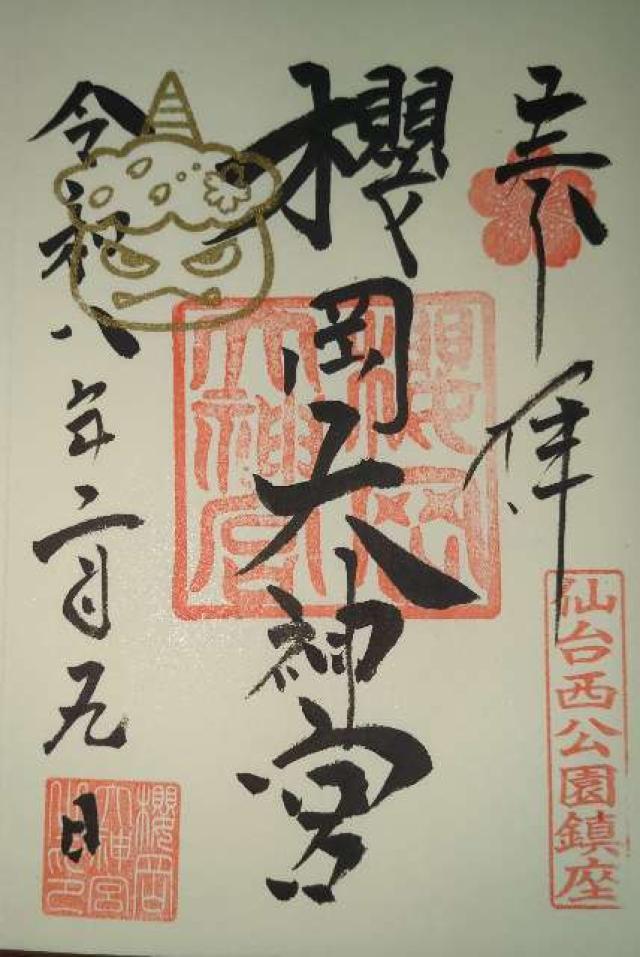 奉拝
仙台西公園鎮座
櫻岡大神宮
櫻岡大神宮
令和八年二月九日
櫻岡大神宮